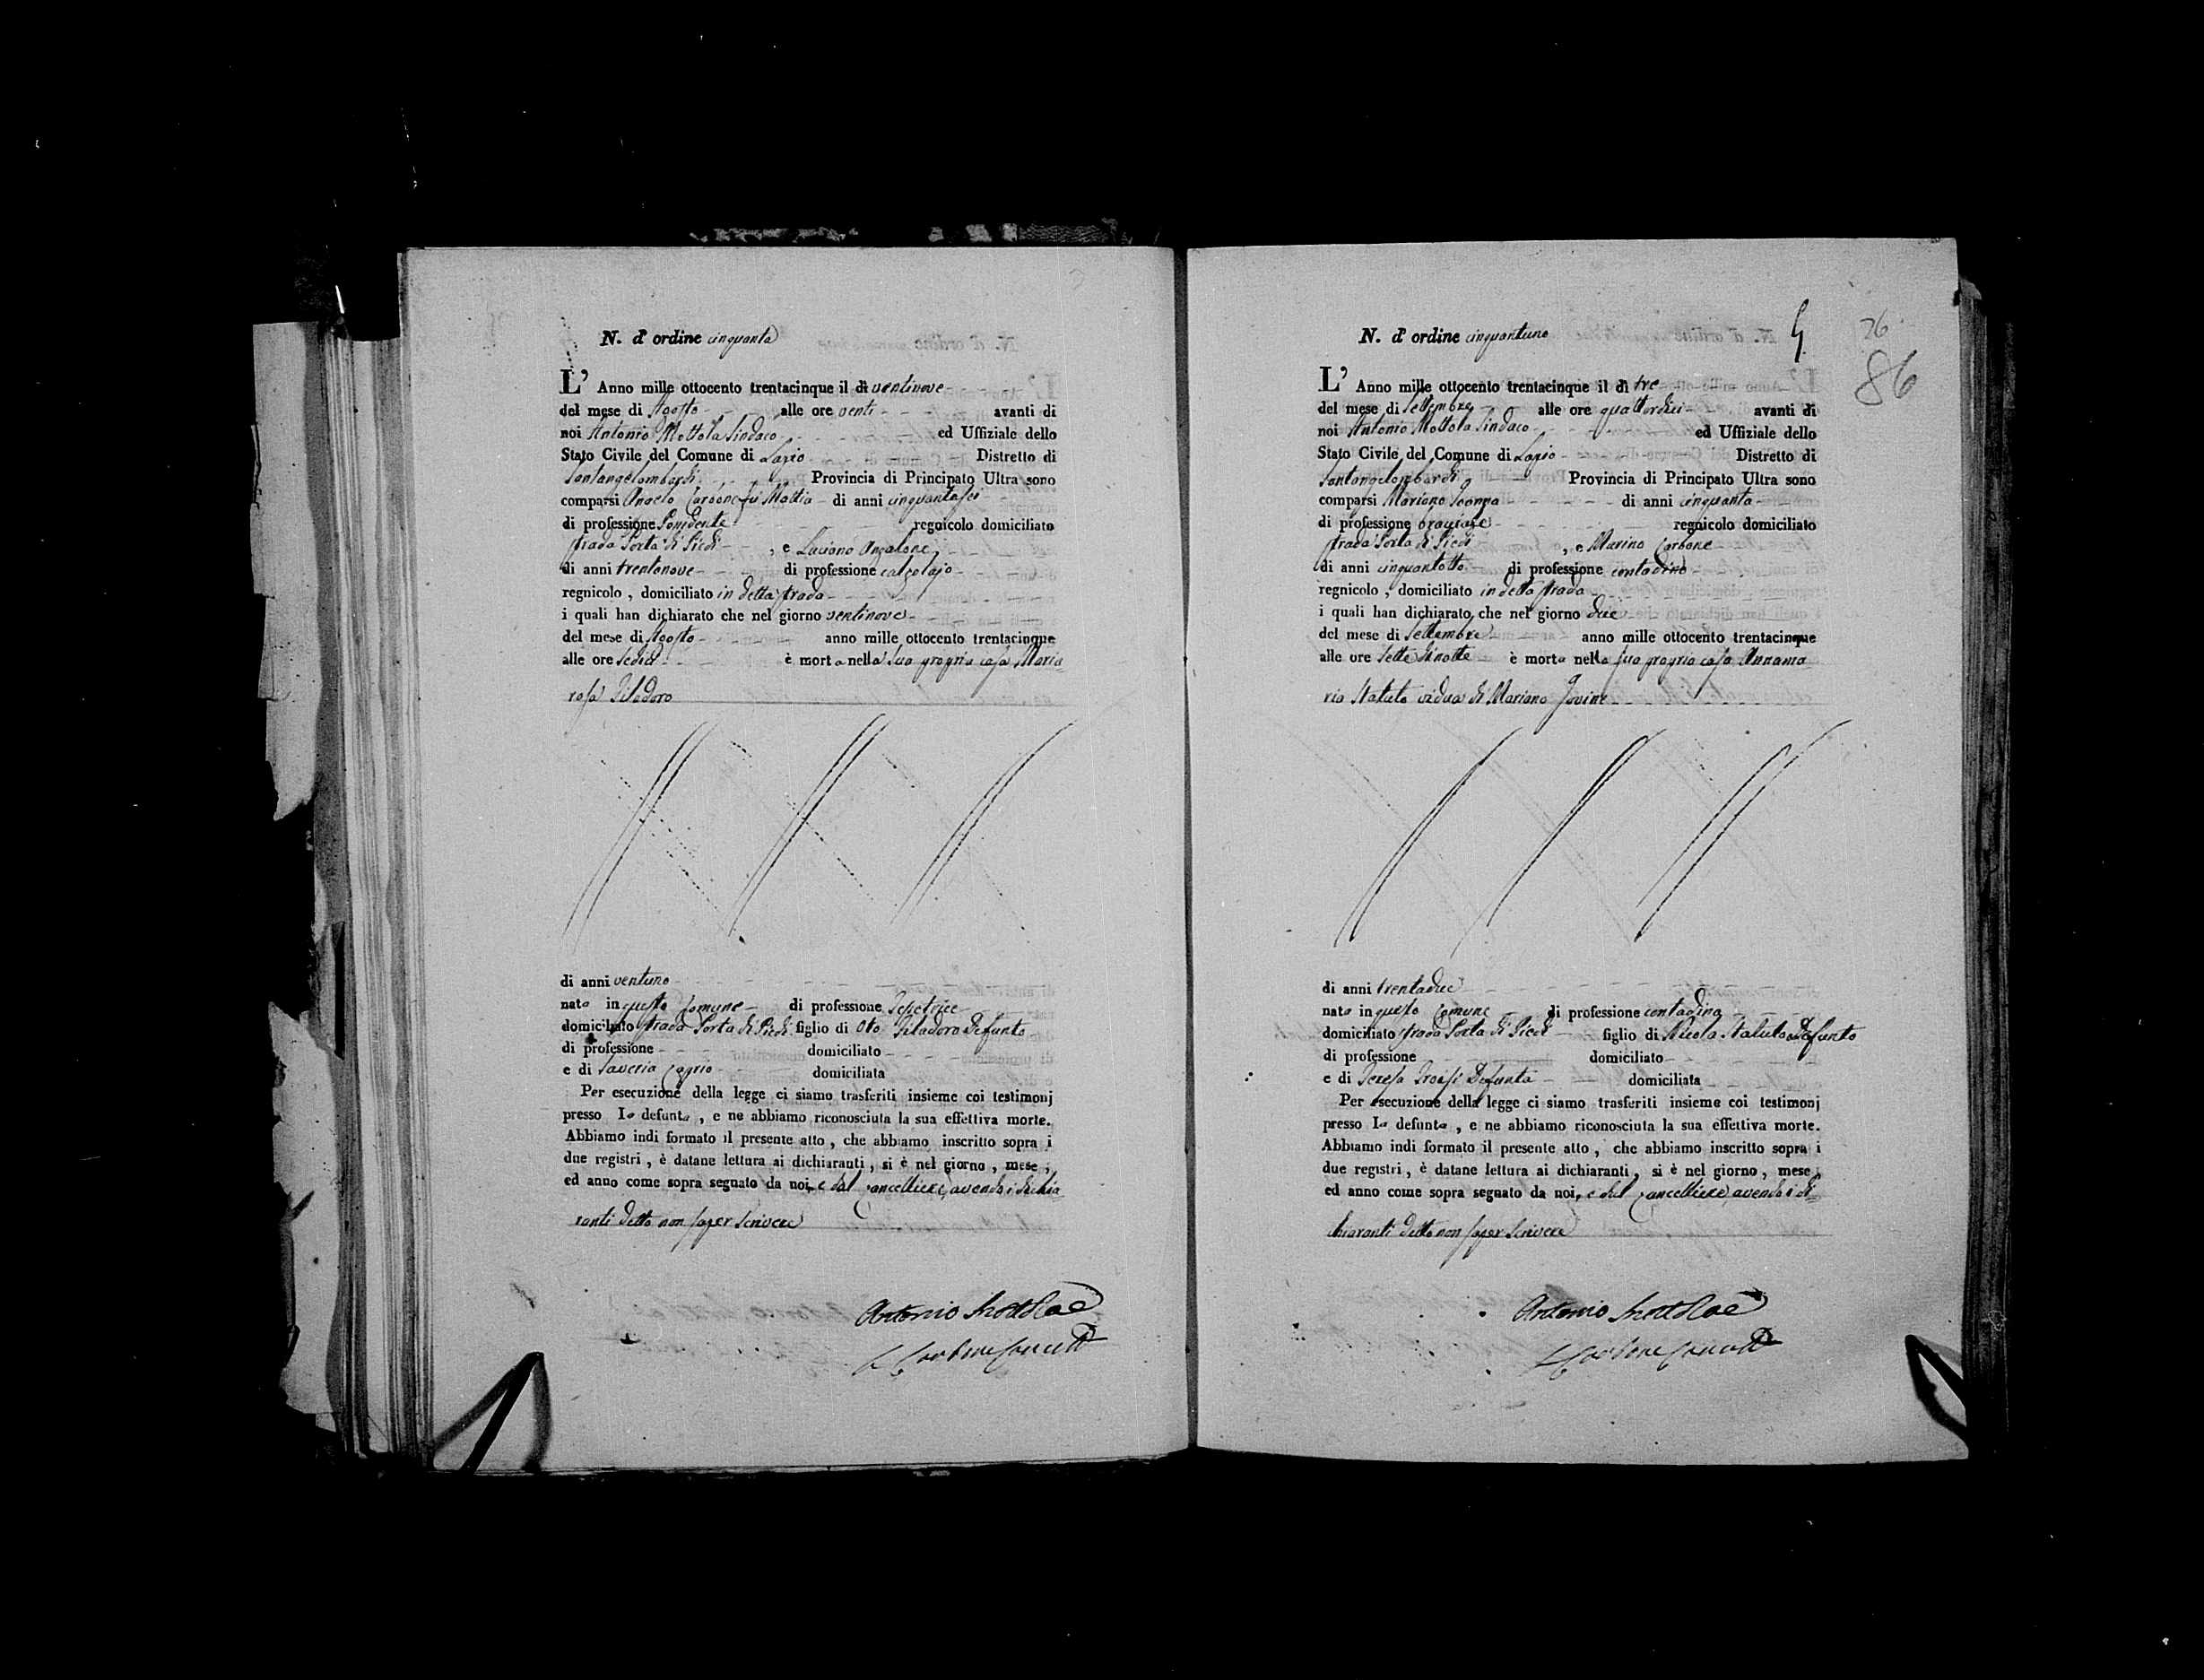 N. d' ordine cinquanta
L' Anno mille ottocento trentacinque il dì ventinove
del mese di Agosto alle ore venti avanti di
noi Antonio Mottola Sindaco ed Uffiziale dello
Stato Civile del Comune di Lapio Distretto di
Santangelombardi Provincia di Principato Ultra sono
comparsi Angelo Carbone fu Mattia di anni cinquantasei
di professione regnicolo domiciliato
strada Porta di Piedi , e Luciano Anzalone
di anni trentanove di professione calzolajo
regnicolo , domiciliato in detta strada
i quali han dichiarato che nel giorno ventinove
del mese di Agosto anno mille ottocento trentacinque
alle ore sedici è morta nella sua propria casa Maria
rosa Piladoro
di anni ventuno
nata in questo Comune di professione
domiciliato strada Porta di Piedi figlio di Piladoro defunto
di professione domiciliato
e di Saveria Caprio domiciliata
Per esecuzione della legge ci siamo trasferiti insieme coi testimonj
presso la defunta , e ne abbiamo riconosciuta la sua effettiva morte.
Abbiamo indi formato il presente atto , che abbiamo inscritto sopra i
due registri , è datane lettura ai dichiaranti , si è nel giorno , mese ,
ed anno come sopra segnato da noi, e dal cancelliere, avendo i dichia
ranti detto non saper scrivere
Antonio Mottola
Carbone Cancell
N. d' ordine cinquantuno
26
86
L' Anno mille ottocento trentacinque il dì tre
del mese di Settembre alle ore quattordici avanti di
noi Antonio Mottola Sindaco ed Uffiziale dello
Stato Civile del Comune di Lapio Distretto di
Santangelombardi Provincia di Principato Ultra sono
comparsi Mariano Scanga di anni cinquanta
di professione bracciale regnicolo domiciliato
strada Porta di Piedi , e Marino Carbone
di anni cinquantotto di professione contadino
regnicolo , domiciliato in detta strada
i quali han dichiarato che nel giorno due
del mese di Settembre anno mille ottocento trentacinque
alle ore sette di notte è morta nella sua propria casa Annama
ria Statuto vedua di Mariano Jovine
di anni trentadue
nata in questo Comune di professione contadina
domiciliato strada Porta di Piedi figlio di Nicola Statuto defunto
di professione domiciliato
e di Teresa Troisi defunta domiciliata
Per esecuzione della legge ci siamo trasferiti insieme coi testimonj
presso la defunta , e ne abbiamo riconosciuta la sua effettiva morte.
Abbiamo indi formato il presente atto , che abbiamo inscritto sopra i
due registri , è datane lettura ai dichiaranti , si è nel giorno , mese ,
ed anno come sopra segnato da noi, e dal cancelliere, avendo i di
chiaranti detto non saper scrivere
Antonio Mottola
Carbone Cancell